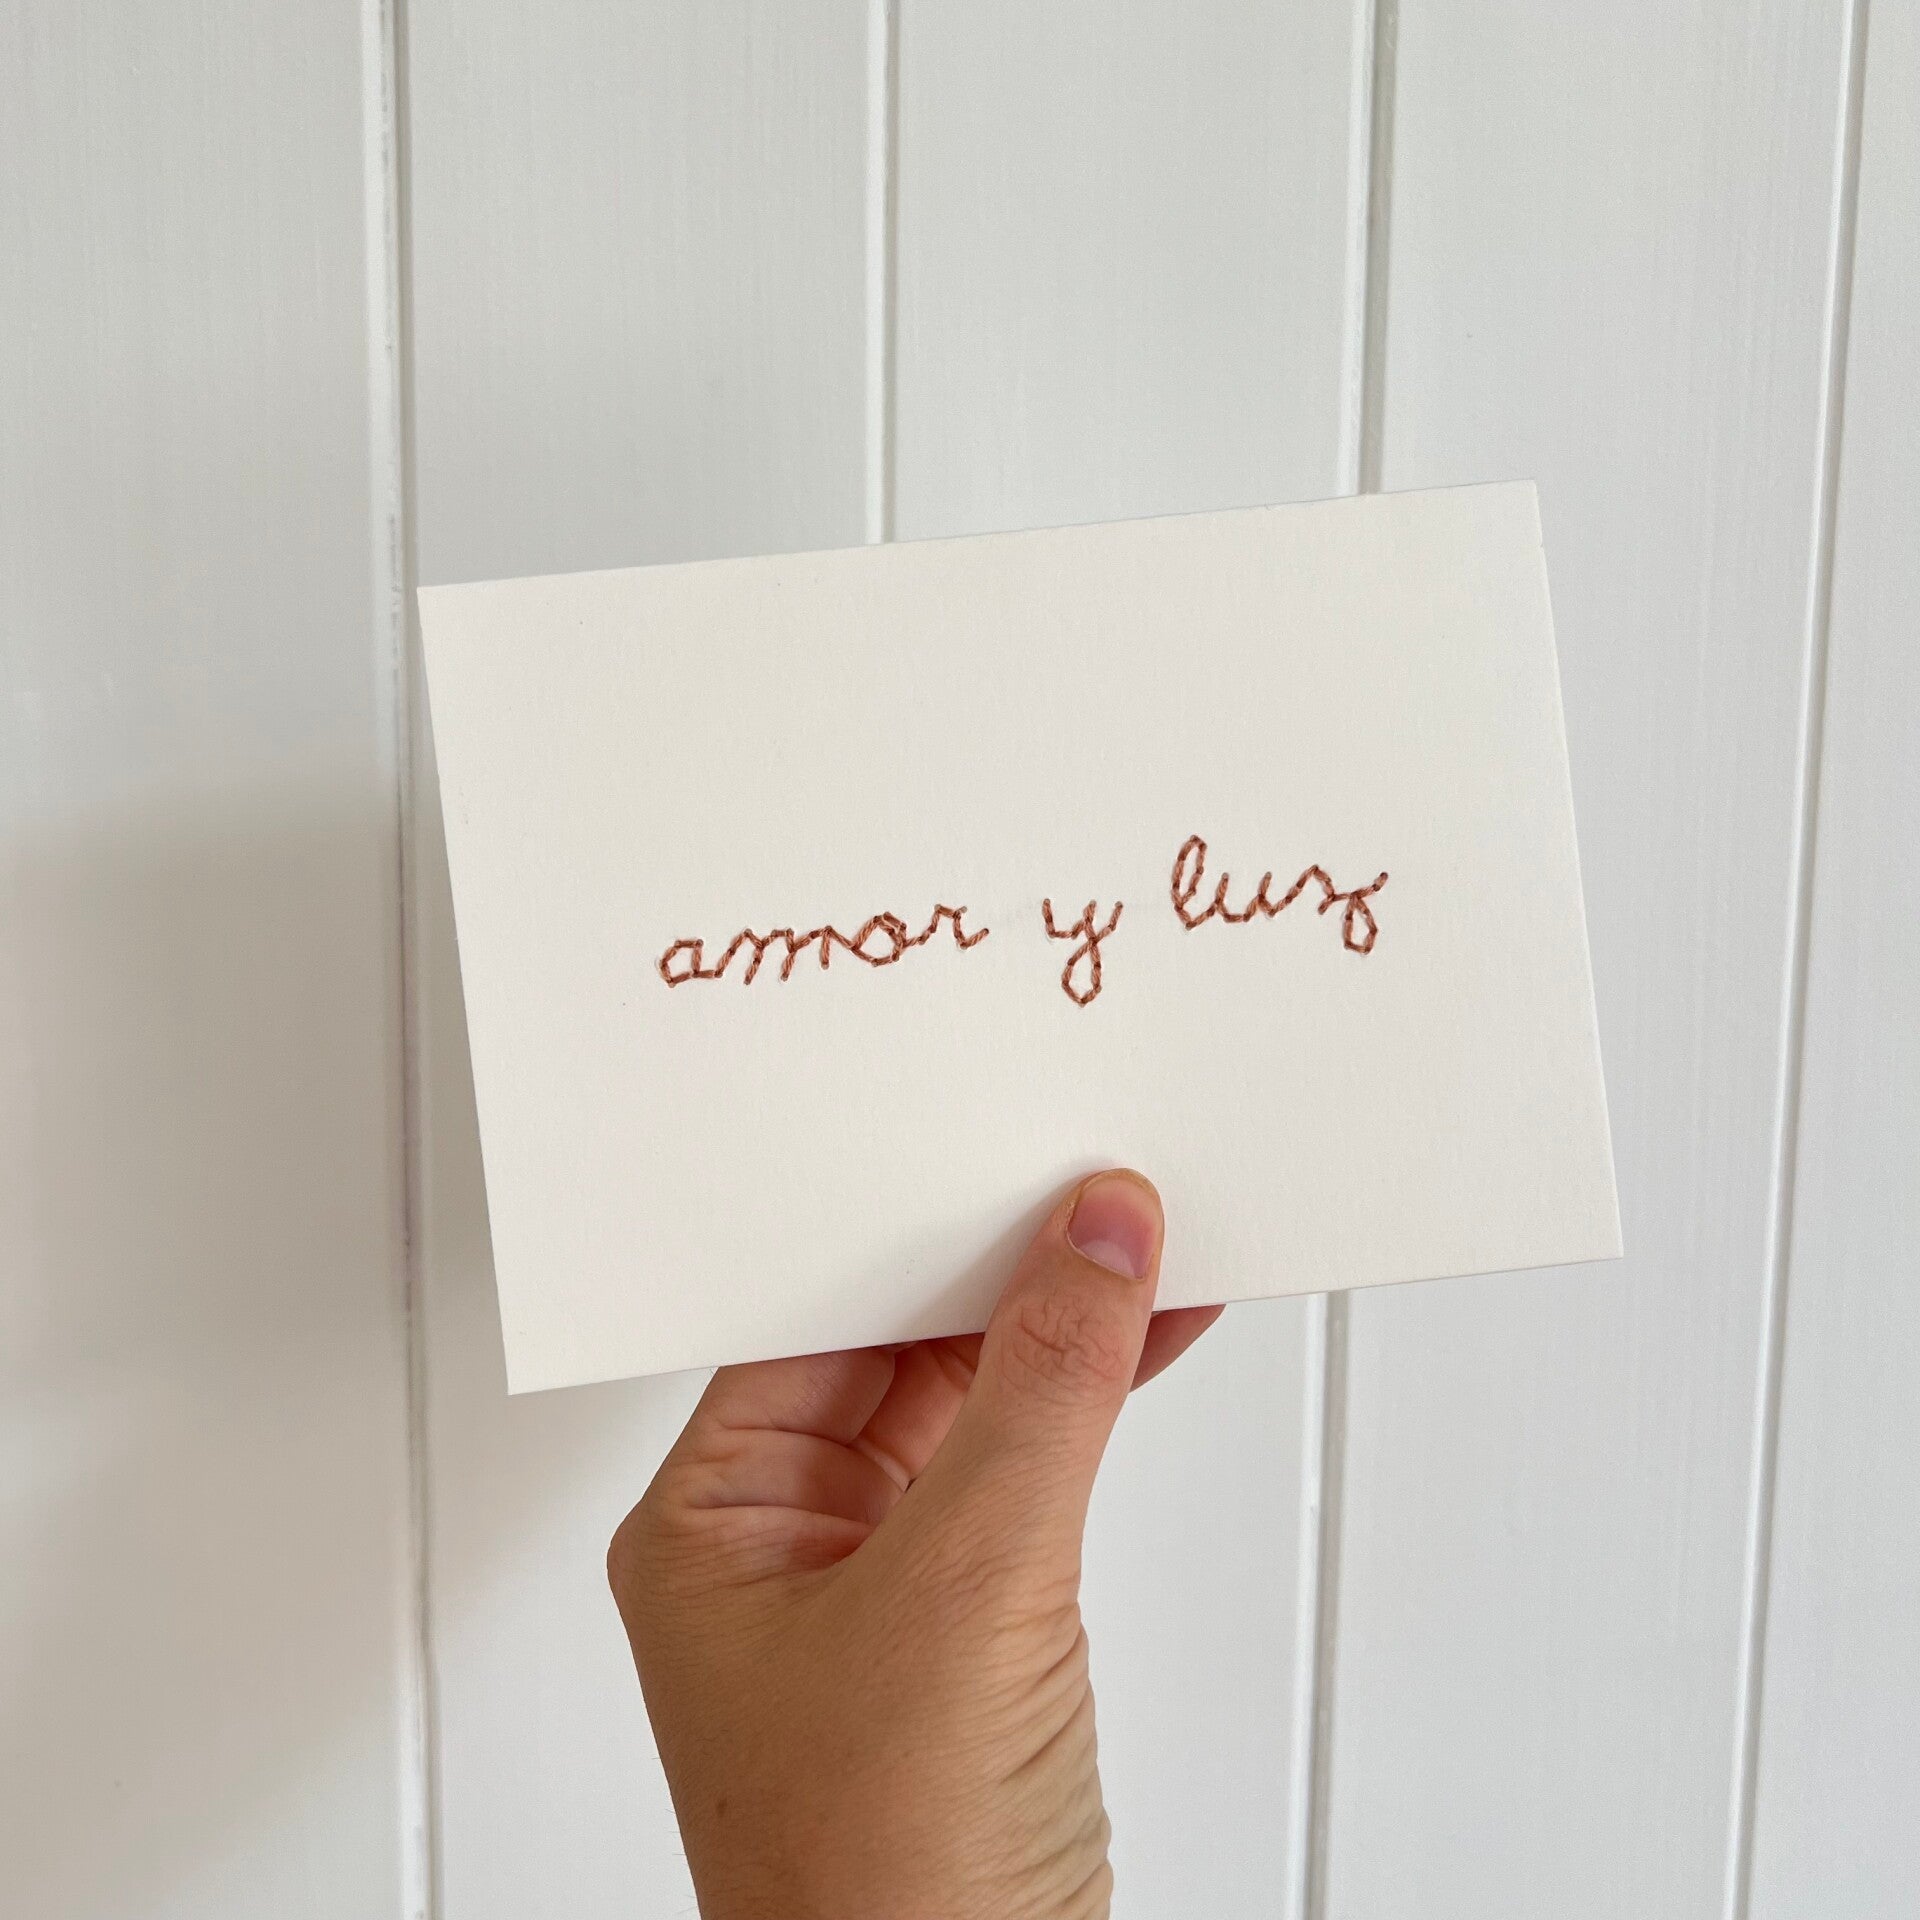 amor y luz